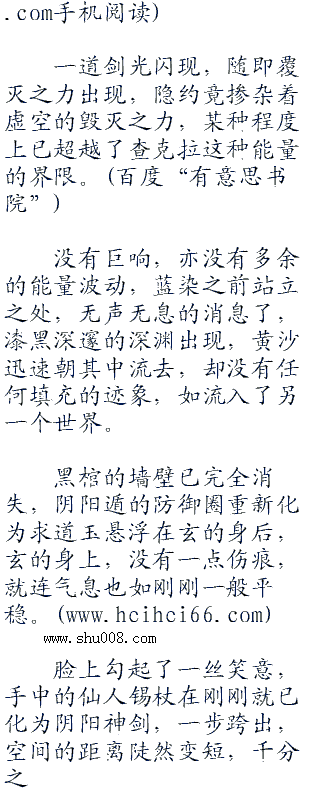 .com手机阅读)
一道剑光闪现，随即覆
灭之力出现，隐约竟掺杂着
虚空的毁灭之力，某种程度
上已超越了查克拉这种能量
的界限。(百度“有意思书
院”)
没有巨响，亦没有多余
的能量波动，蓝染之前站立
之处，无声无息的消息了，
漆黑深邃的深渊出现，黄沙
迅速朝其中流去，却没有任
何填充的迹象，如流入了另
一个世界。
黑棺的墙壁已完全消
失，阴阳遁的防御圈重新化
为求道玉悬浮在玄的身后，
玄的身上，没有一点伤痕，
就连气息也如刚刚一般平
稳。(www.hcihci66.com)
www.shu008.com
脸上勾起了一丝笑意，
手中的仙人锡杖在刚刚就已
化为阴阳神剑，一步跨出，
空间的距离陡然变短，千分
之